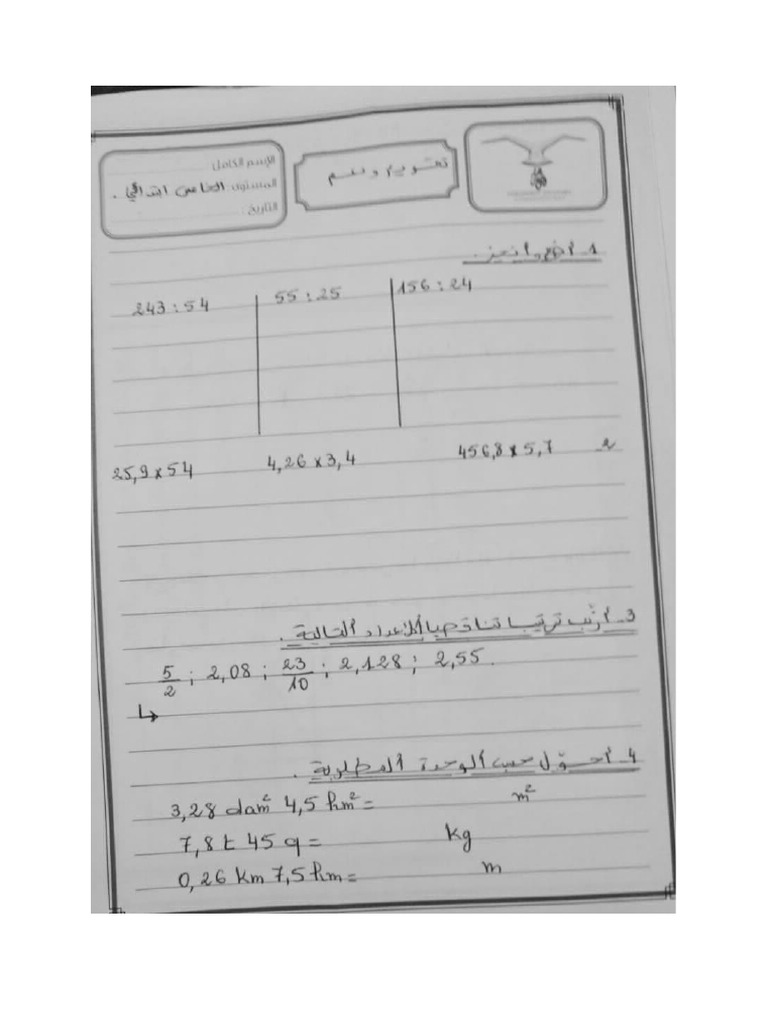 الإسم الكامل
المستوى الخامس ابتدائي.
التاريخ
تقويم ودعم
1_ أضع وأنجز.
243 : 54 55 : 25 156 : 24
2_
25,9 x 54 4,26 x 3,4 456,8 x 5,7
3_ أرتب ترتيبا تناقصيا الأعداد التالية.
5/2 ; 2,08 ; 23/10 ; 2,128 ; 2,55.
4_ أحول حسب الوحدة المطلوبة.
3,28 dam² 4,5 hm² = m²
7,8 t 45 q = kg
0,26 km 7,5 hm = m